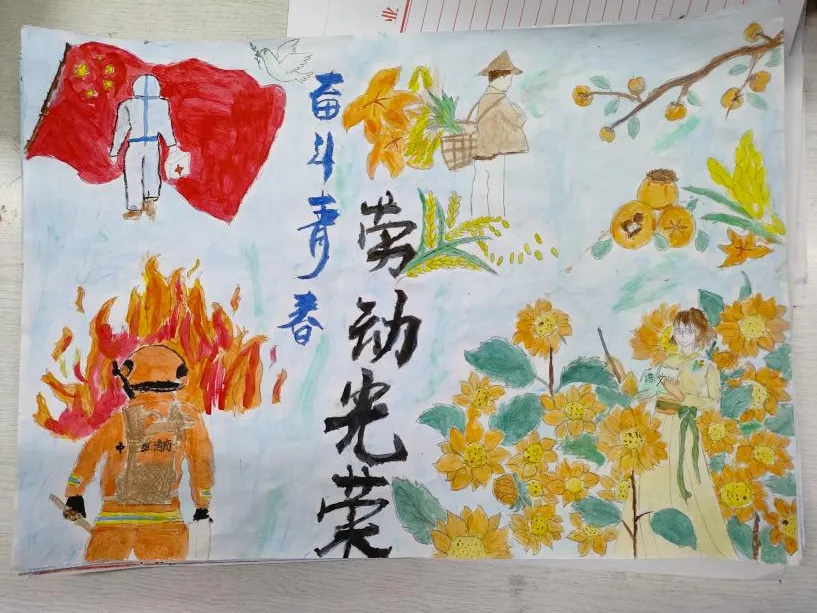 奋斗青春
劳动光荣
中国消防
语文